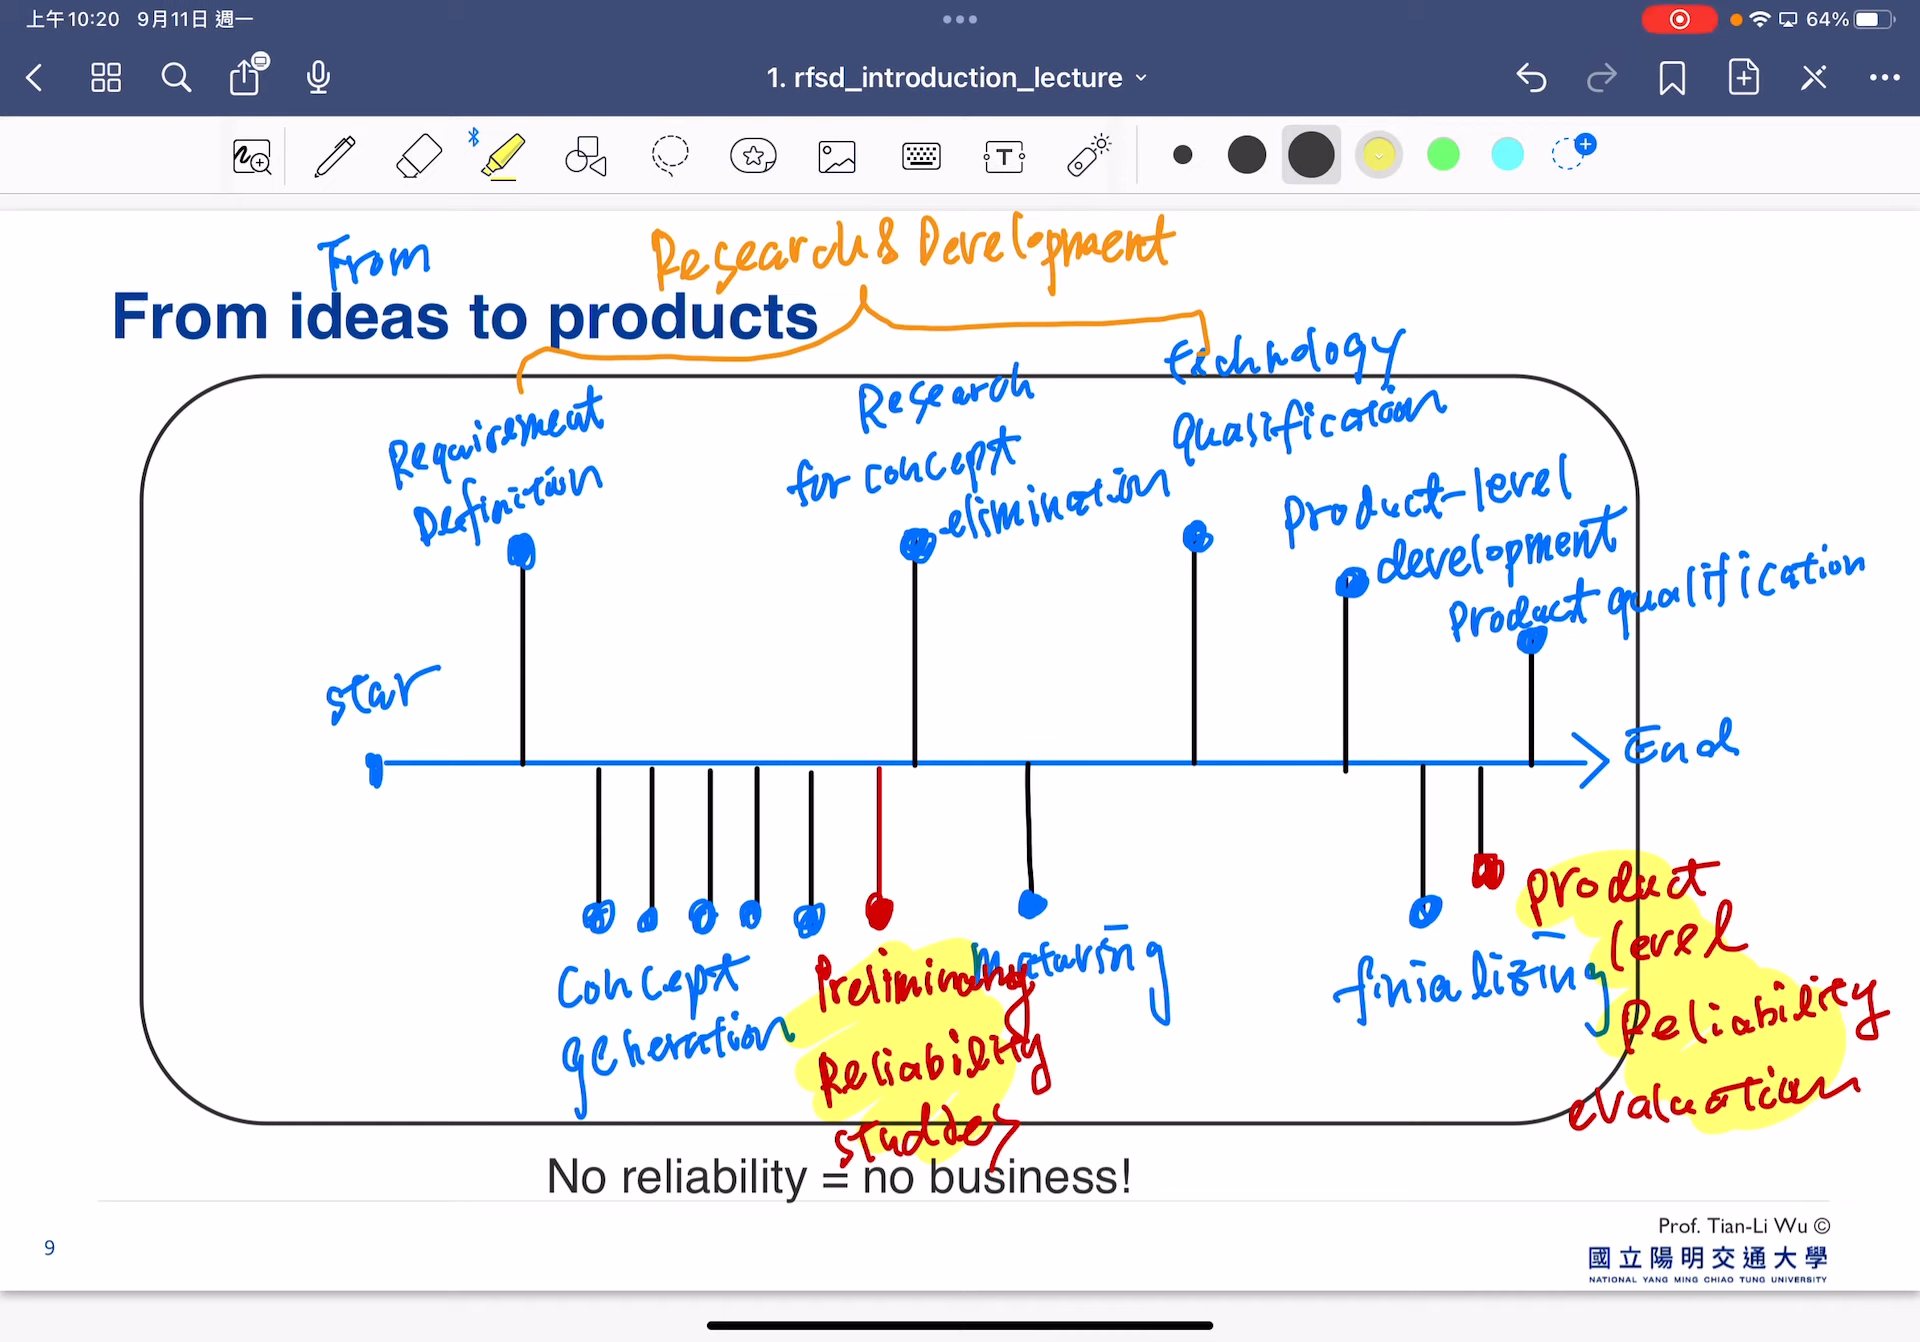 上午10:20 9月11日 週一
64%
1. rfsd_introduction_lecture
From
Research & Development
From ideas to products
Requirement
Definition
Research
for concept
elimination
technology
qualification
product-level
development
product qualification
star
End
Concept
generation
Preliminary
Reliability
studdes
maturing
finializing
product
level
Reliability
evaluation
No reliability = no business!
Prof. Tian-Li Wu ©
國立陽明交通大學
NATIONAL YANG MING CHIAO TUNG UNIVERSITY
9